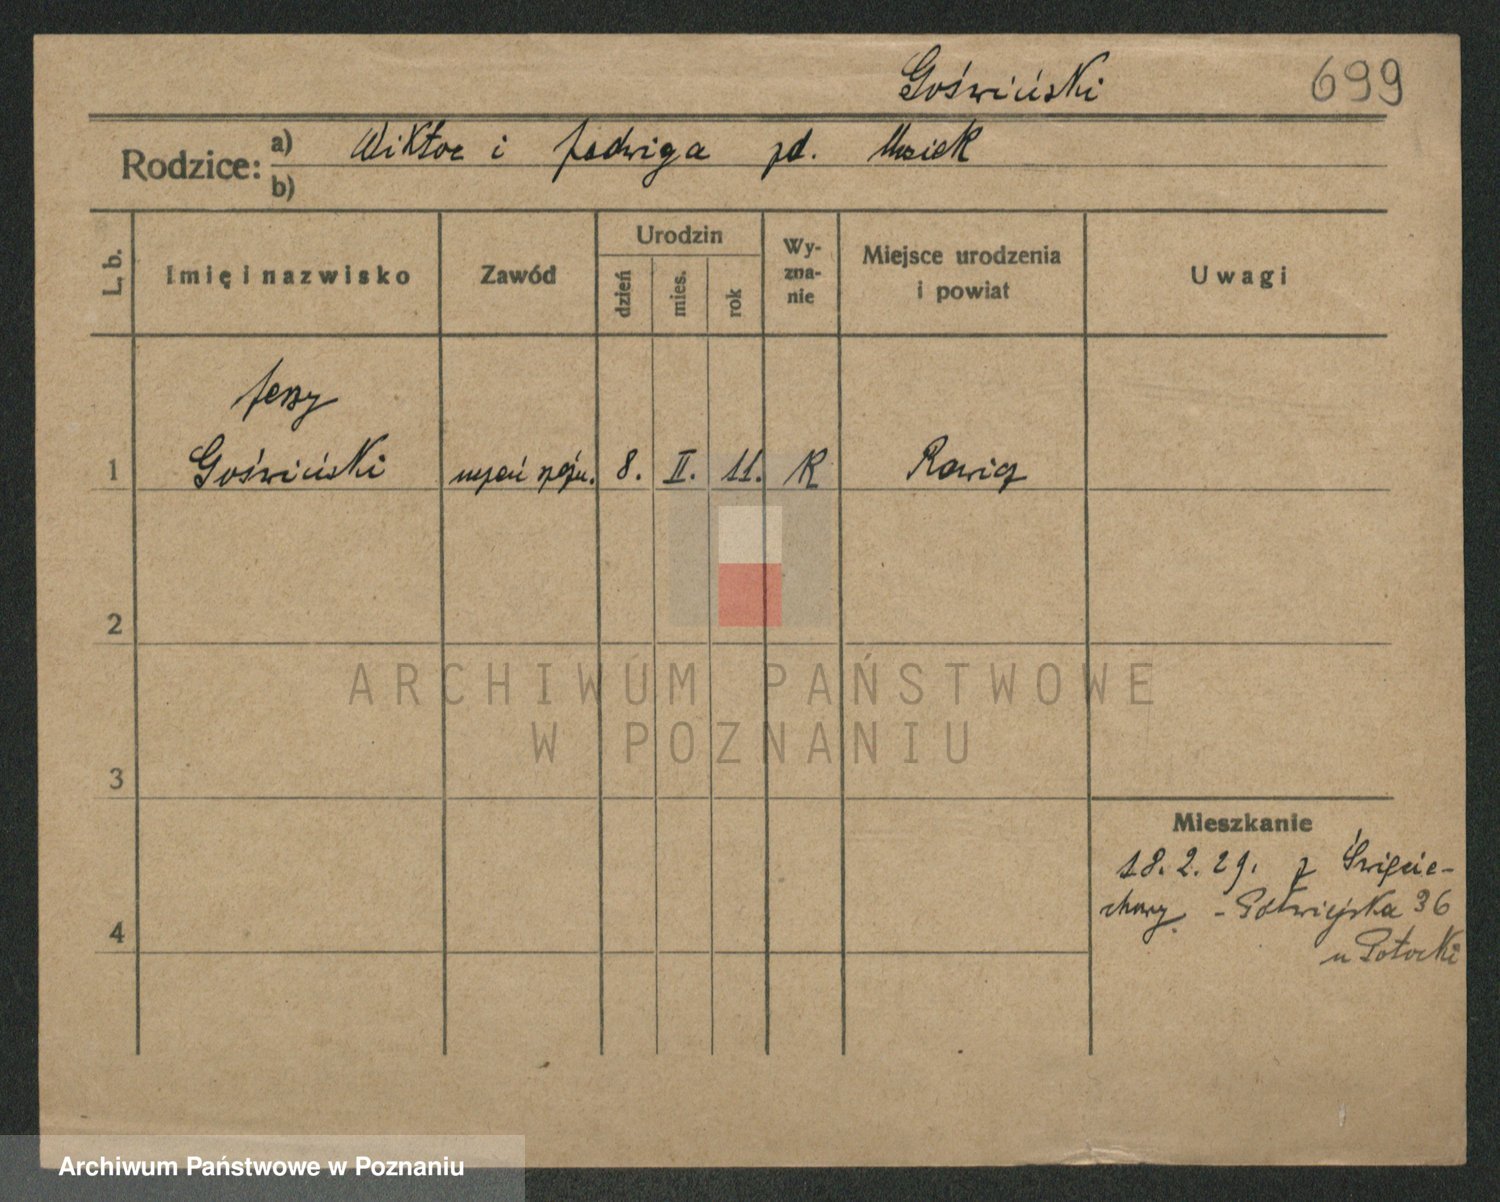 Gościński 699
Rodzice: a) Wiktor i Jadwiga zd.
b)
L. b. Imię i nazwisko Zawód Urodzin dzień mies. rok Wy-zna-nie Miejsce urodzenia i powiat Uwagi
Jerzy
1 Gościński uczeń 8. II. 11. K Rawicz
2
3
4
Mieszkanie
18.2.29. z Święcie-
chowy. - Półwiejska 36
u Potocki
ARCHIWUM PAŃSTWOWE
W POZNANIU
Archiwum Państwowe w Poznaniu